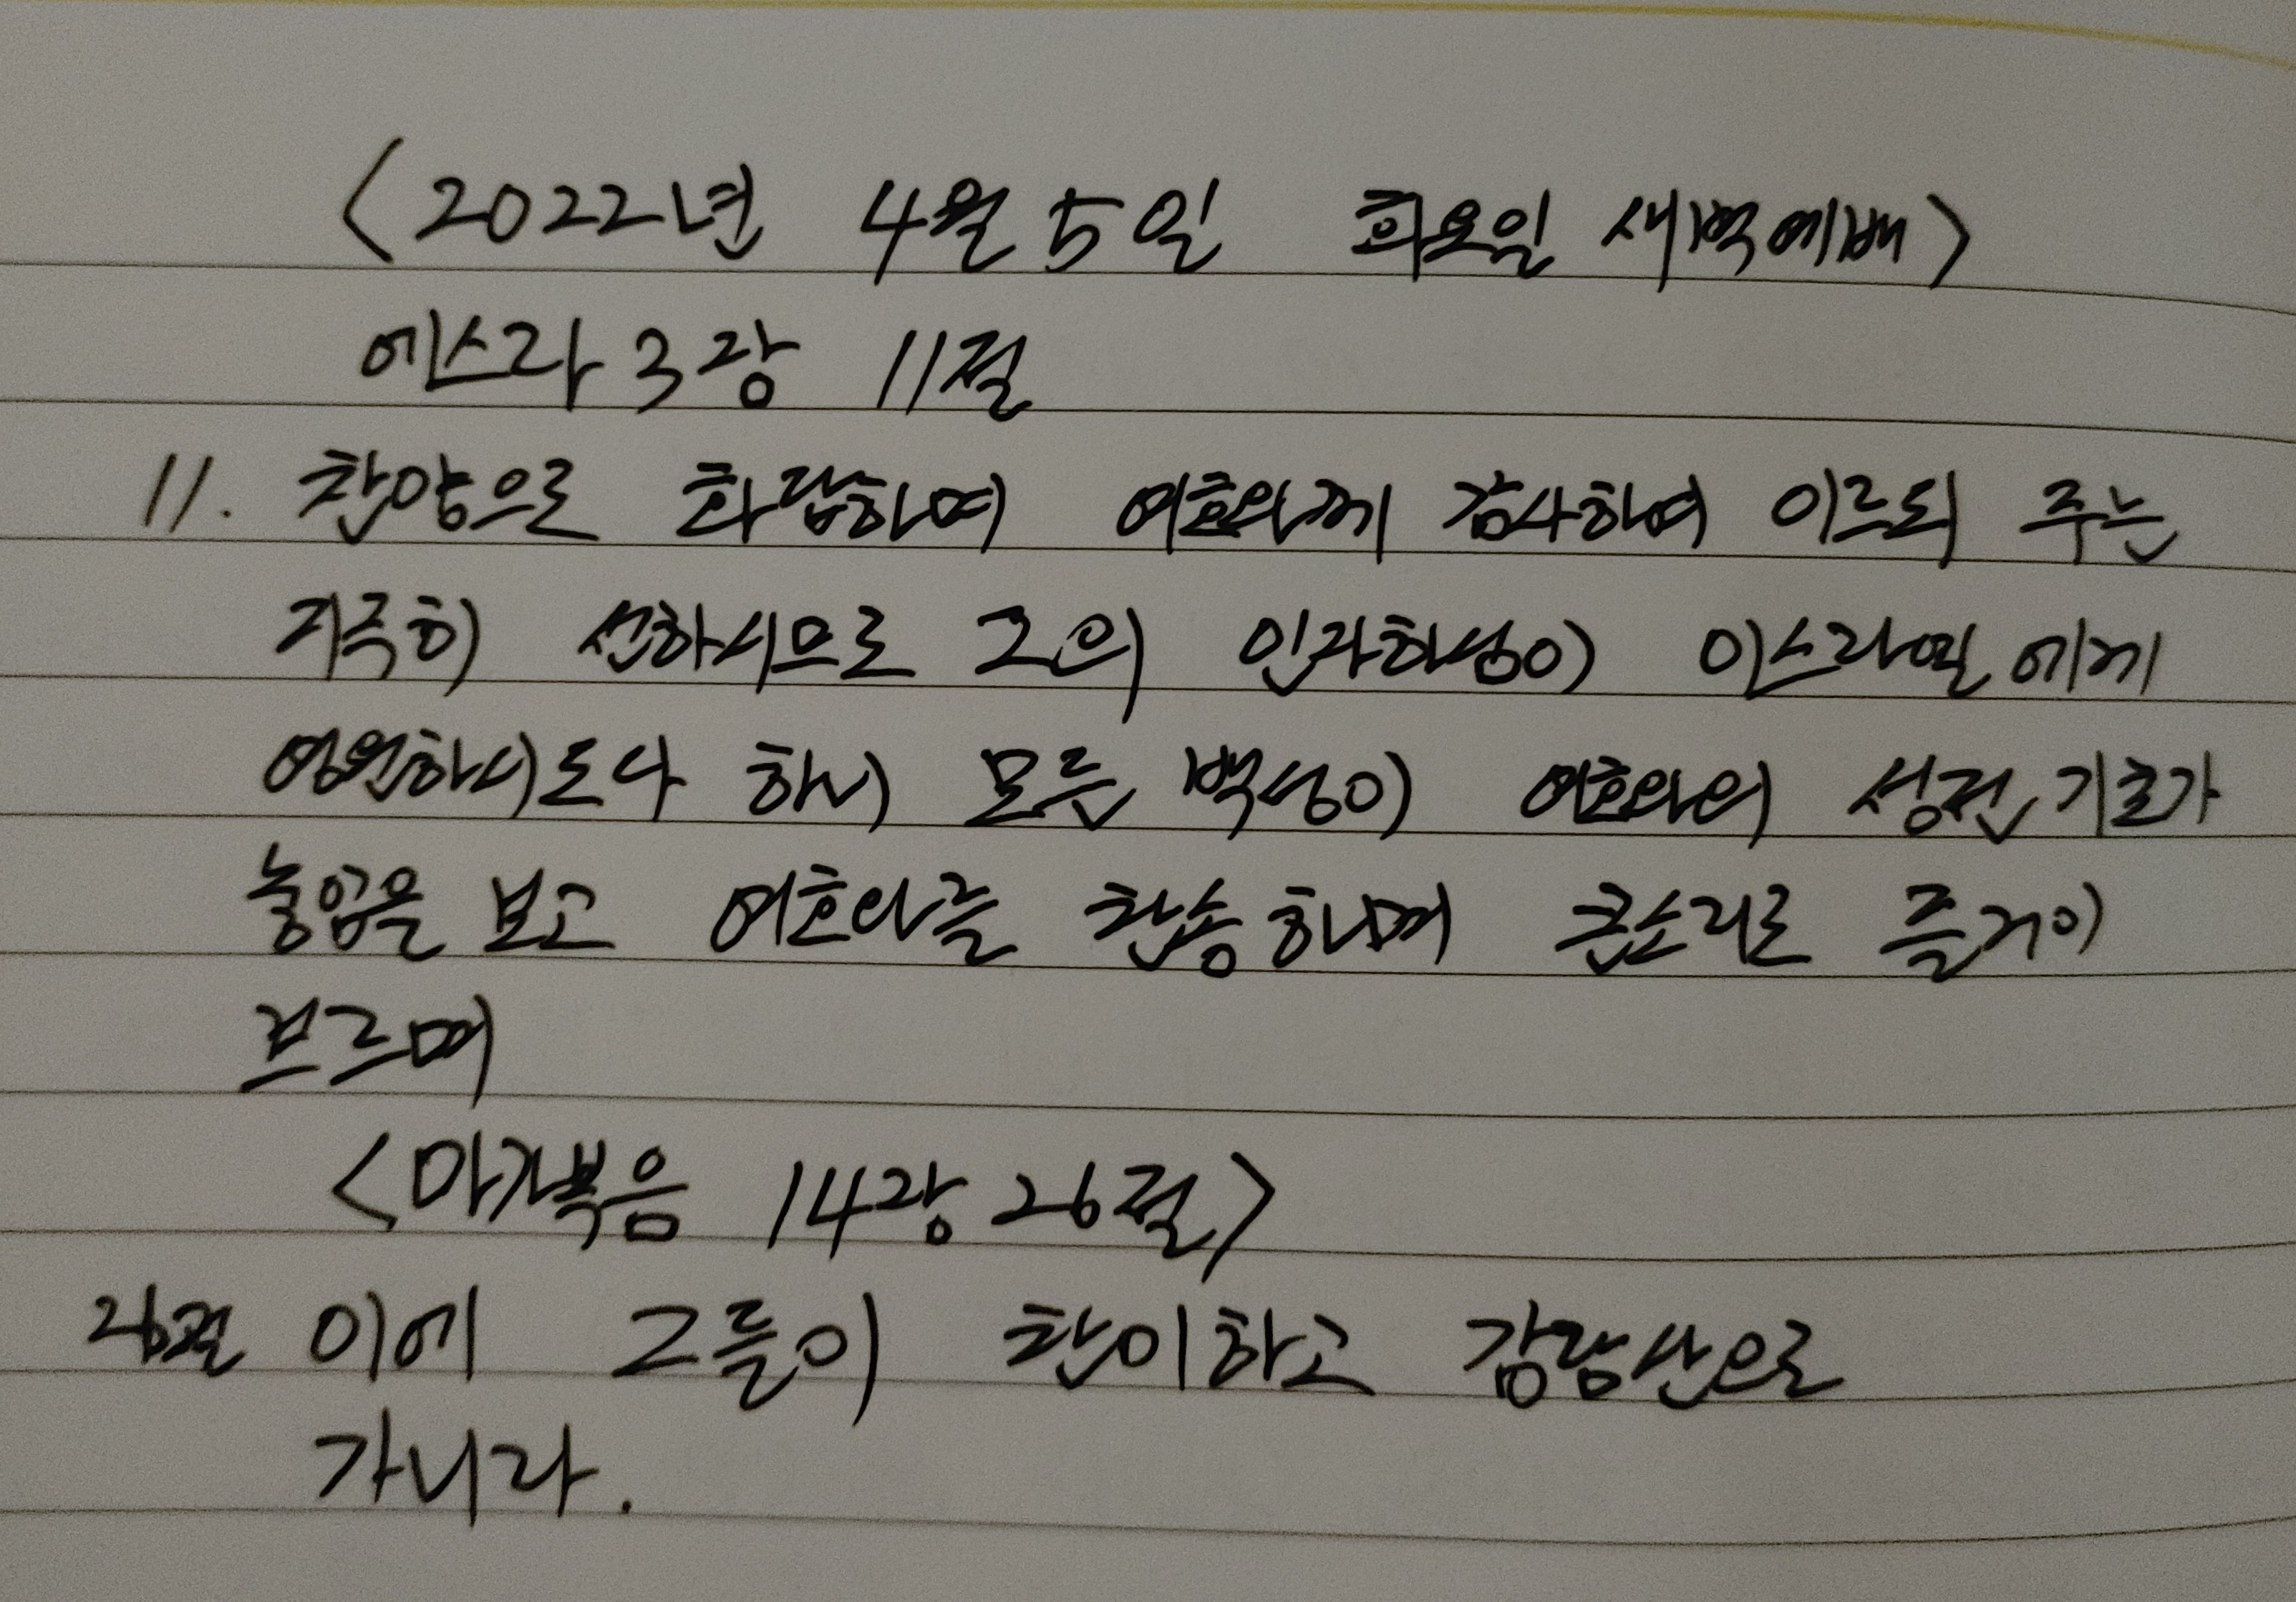 <2022년 4월 5일 화요일 새벽예배>
에스라 3장 11절
11. 찬양으로 화답하여 여호와께 감사하여 이르되 주는
지극히 선하시므로 그의 인자하심이 이스라엘에게
영원하시도다 하니 모든 백성이 여호와의 성전 기초가
놓임을 보고 여호와를 찬송하며 큰소리로 즐거이
부르며
<마가복음 14장 26절>
26절 이에 그들이 찬미하고 감람산으로
가니라.